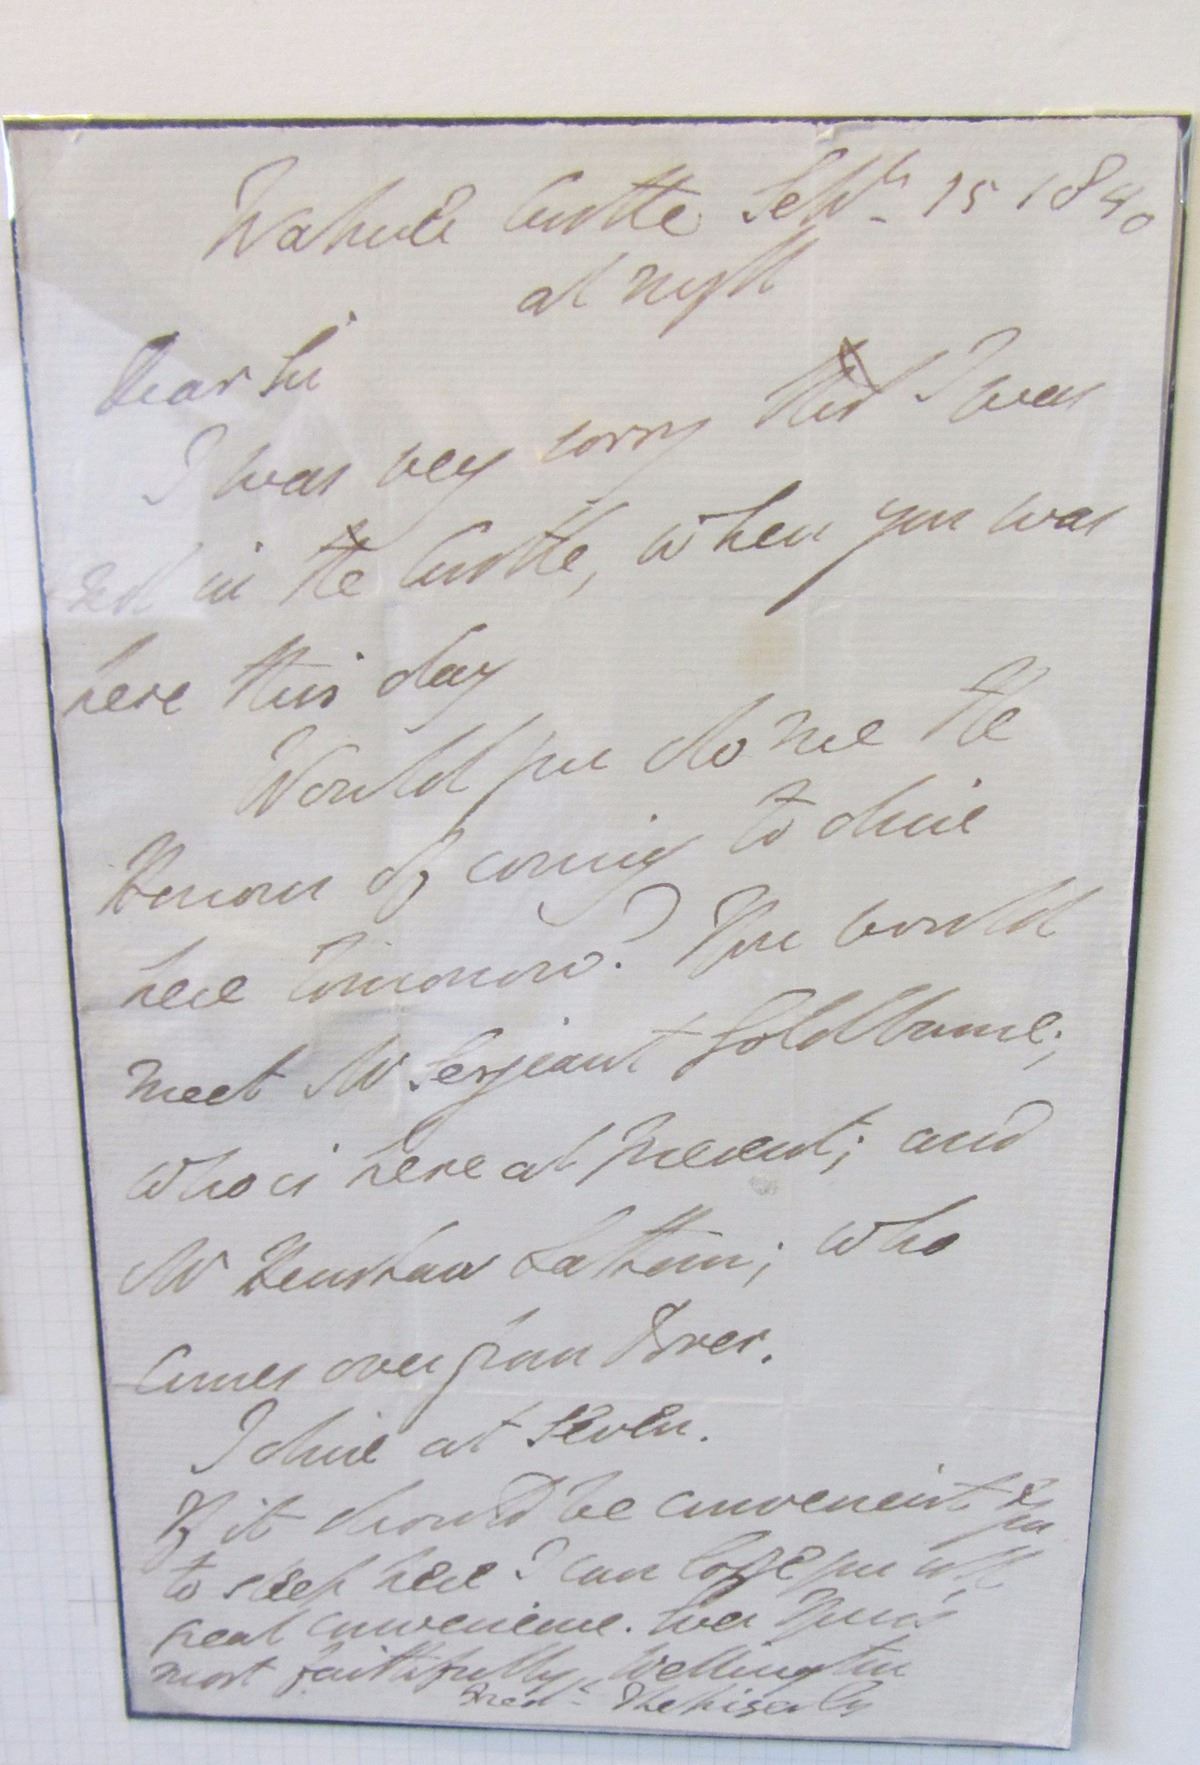 Walmer Castle Septr. 15 1840
at night
Dear Sir
I was very sorry that I was
not in the Castle, when you was
here this day
Would you do me the
Honour of coming to dine
here tomorrow? You would
meet Mr Serjeant Goldbourne;
who is here at present; and
Mr Henshaw Latham; who
comes over from Dover.
I dine at seven.
If it should be convenient to you
to sleep here I can lodge you with
great convenience. Ever Yours
most faithfully Wellington
Fredk